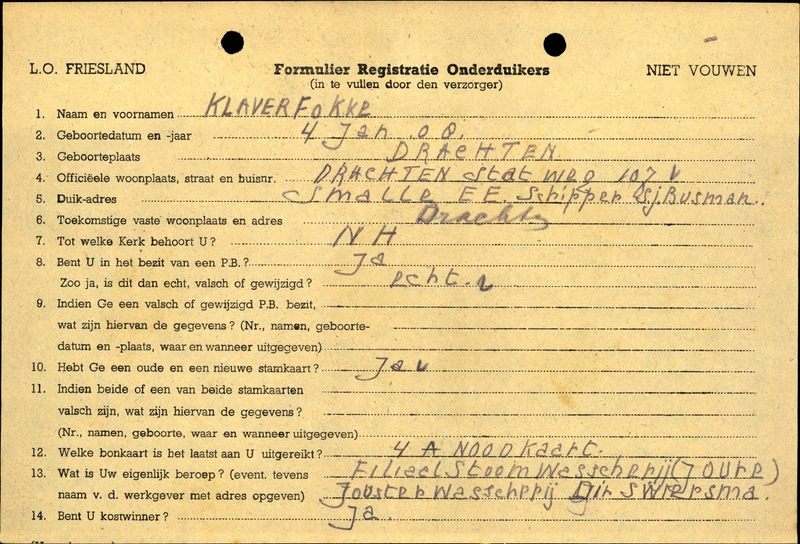 L.O. FRIESLAND Formulier Registratie Onderduikers NIET VOUWEN
(in te vullen door den verzorger)
1. Naam en voornamen KLAVER FOKKE
2. Geboortedatum en -jaar 4 Jan 00.
3. Geboorteplaats DRACHTEN
4. Officiëele woonplaats, straat en huisnr. DRACHTEN Stat weg 107 V
5. Duik-adres Smalle EE. Schipper Sj. Busman.
6. Toekomstige vaste woonplaats en adres Drachten
7. Tot welke Kerk behoort U? NH
8. Bent U in het bezit van een P.B.? Ja
Zoo ja, is dit dan echt, valsch of gewijzigd? echt.
9. Indien Ge een valsch of gewijzigd P.B. bezit,
wat zijn hiervan de gegevens? (Nr., namen, geboorte-
datum en -plaats, waar en wanneer uitgegeven)
10. Hebt Ge een oude en een nieuwe stamkaart? Ja
11. Indien beide of een van beide stamkaarten
valsch zijn, wat zijn hiervan de gegevens?
(Nr., namen, geboorte, waar en wanneer uitgegeven)
12. Welke bonkaart is het laatst aan U uitgereikt? 4 A NOODKAART.
13. Wat is Uw eigenlijk beroep? (event. tevens Filiael Stoom Wasscherij (JOURE)
naam v. d. werkgever met adres opgeven) Jouster Wasscherij Dir SWIERSMA.
14. Bent U kostwinner? Ja.